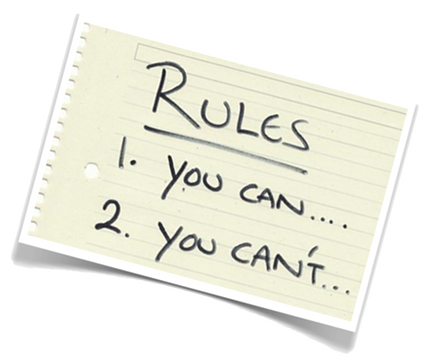 RULES
1. YOU CAN....
2. YOU CAN'T...